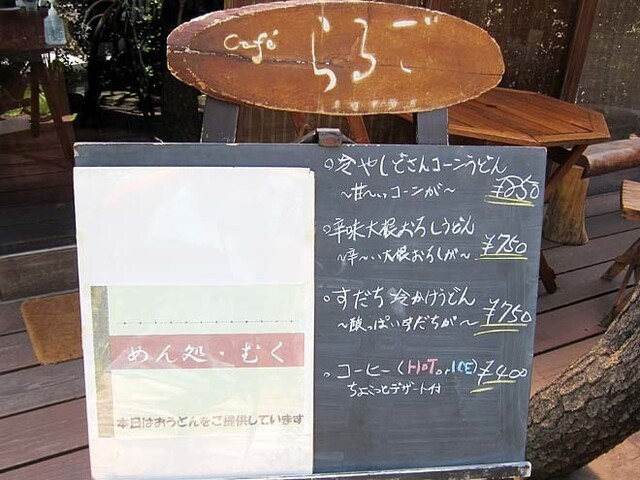 Café らるご
めん処・むく
本日はおうどんをご提供しています
○冷やしどさんコーンうどん
〜甘〜いコーンが〜 ¥850
○辛味大根おろしうどん
〜辛〜い大根おろしが〜 ¥750
○すだち冷かけうどん
〜酸っぱいすだちが〜 ¥750
○コーヒー(HOT or ICE) ¥400
ちょこっとデザート付